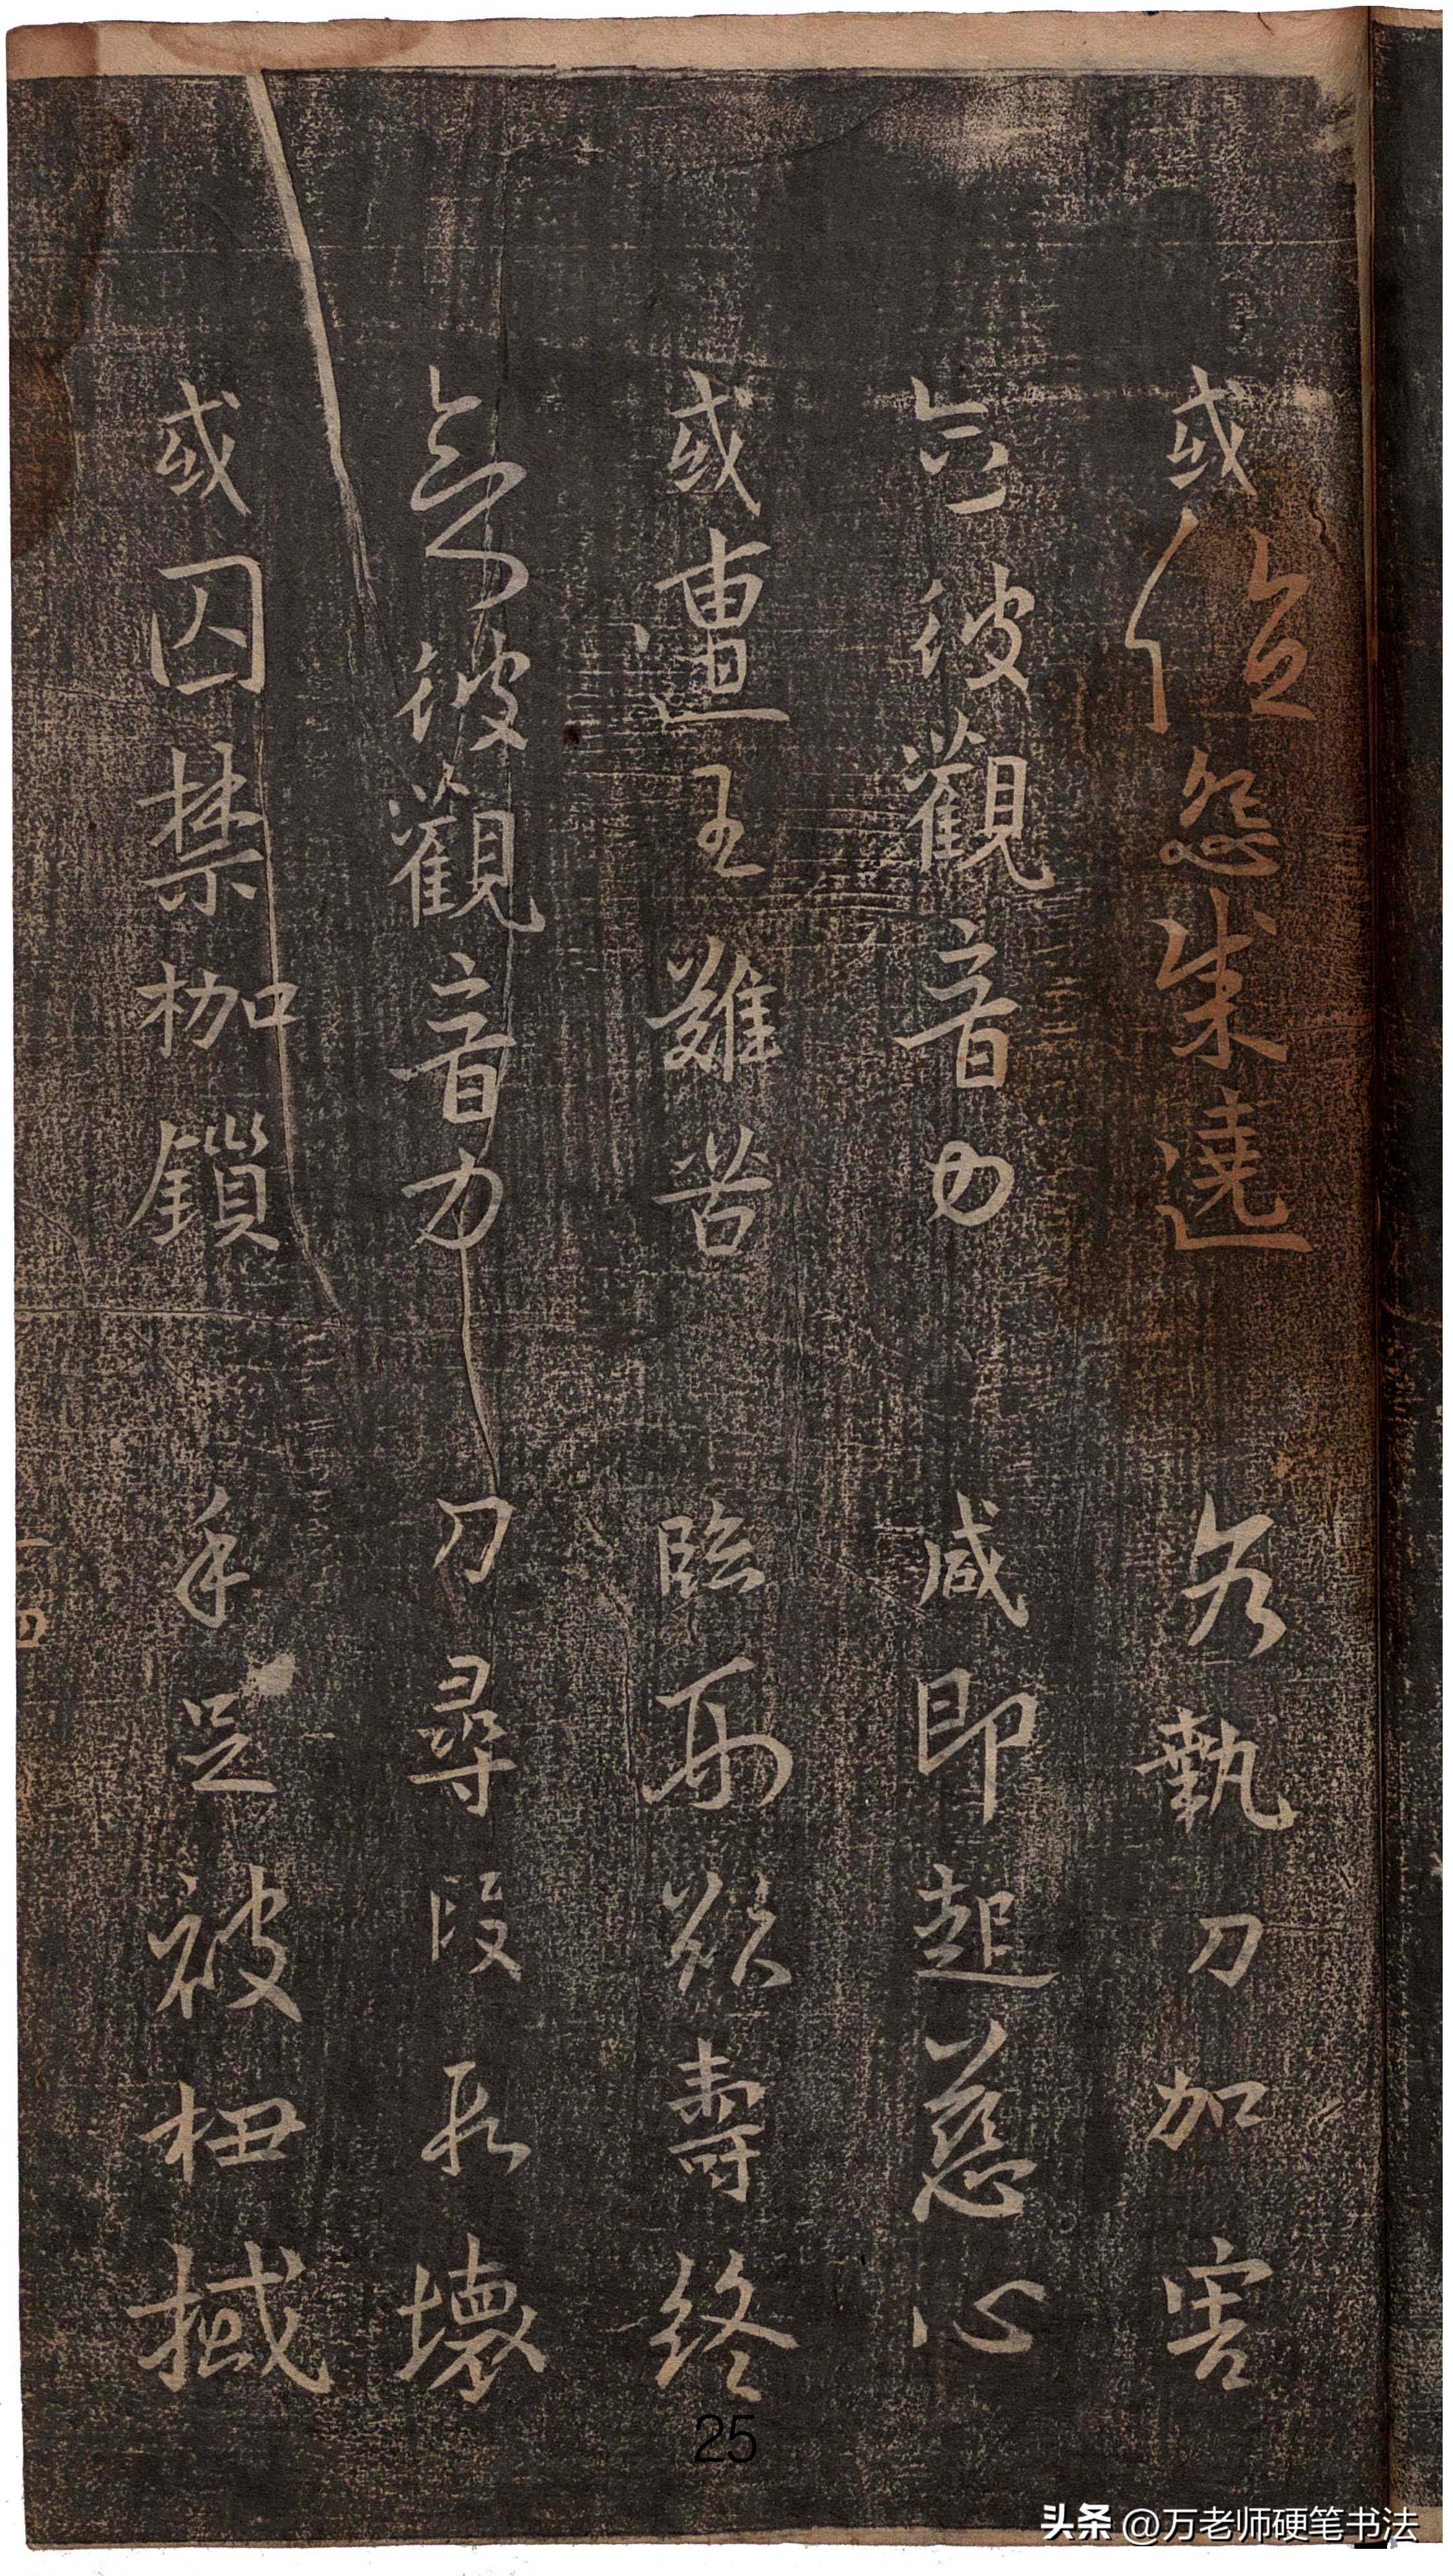 或值怨賊遶　各執刀加害
念彼觀音力　咸即起慈心
或遭王難苦　臨刑欲壽終
念彼觀音力　刀尋段段壞
或囚禁枷鎖　手足被杻械
一四
25
头条 @万老师硬笔书法